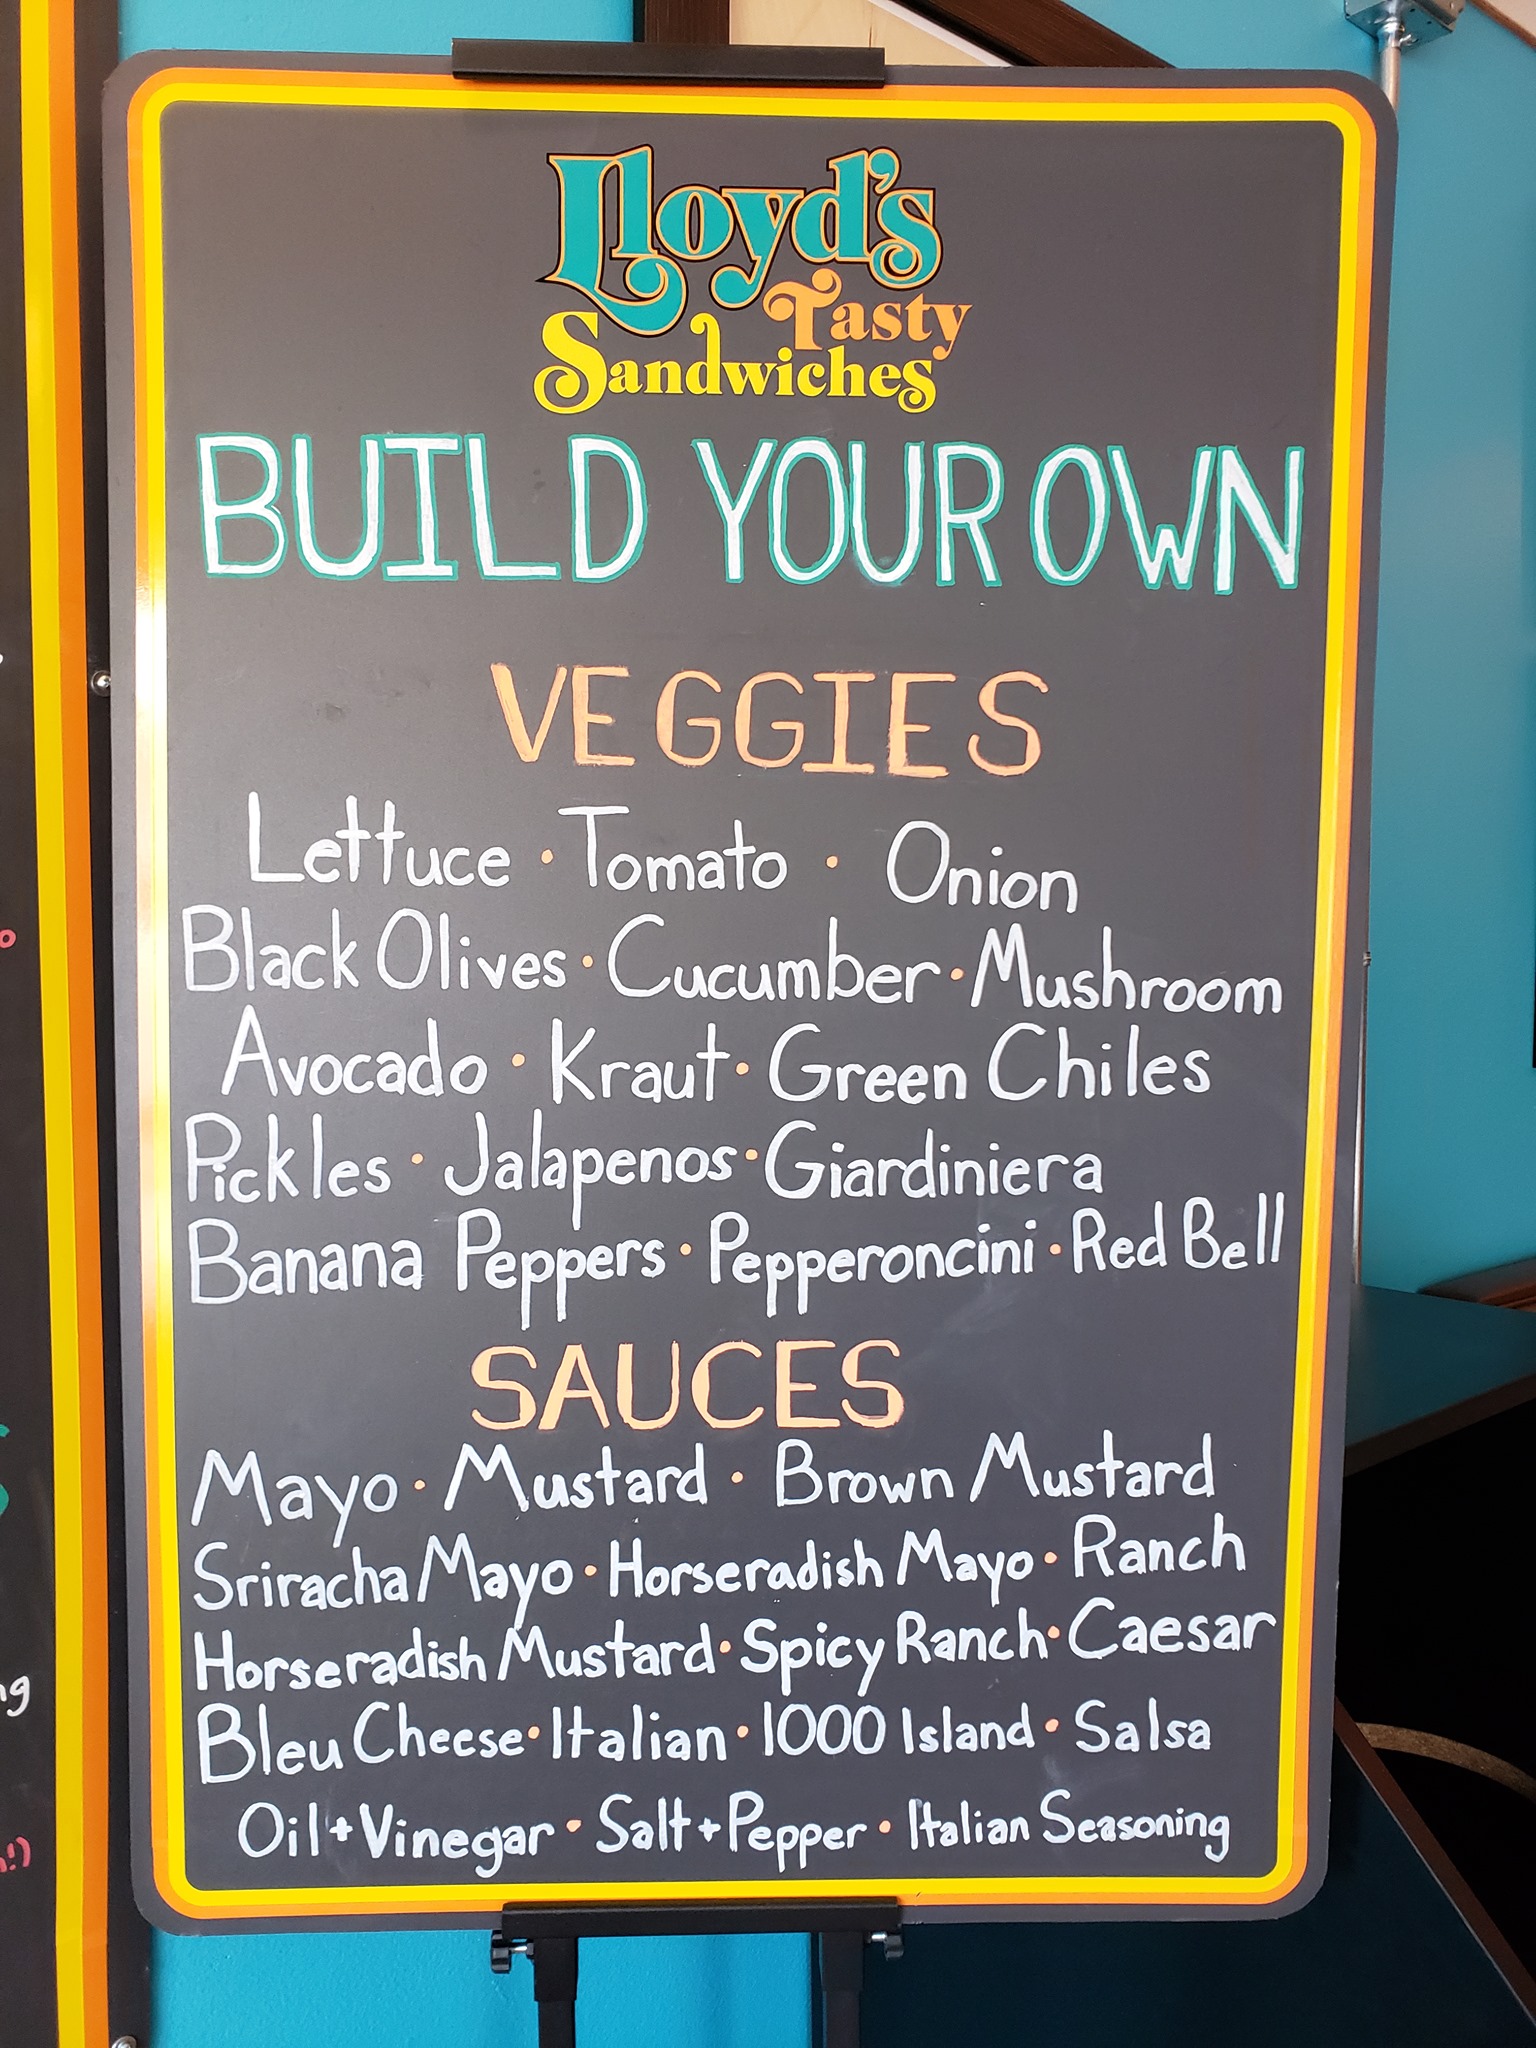 Lloyd's
Tasty
Sandwiches
BUILD YOUR OWN
VEGGIES
Lettuce · Tomato · Onion
Black Olives · Cucumber · Mushroom
Avocado · Kraut · Green Chiles
Pickles · Jalapenos · Giardiniera
Banana Peppers · Pepperoncini · Red Bell
SAUCES
Mayo · Mustard · Brown Mustard
Sriracha Mayo · Horseradish Mayo · Ranch
Horseradish Mustard · Spicy Ranch · Caesar
Bleu Cheese · Italian · 1000 Island · Salsa
Oil + Vinegar · Salt + Pepper · Italian Seasoning